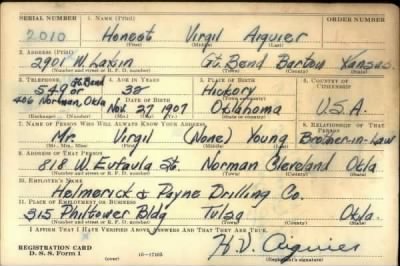 SERIAL NUMBER 1. NAME (Print) ORDER NUMBER
2010 Honest Virgil Aiguier
(First) (Middle) (Last)
2. ADDRESS (Print)
2901 W. Laxin Gt. Bend Barton Kansas
(Number and street or R. F. D. number) (Town) (County) (State)
3. TELEPHONE 4. AGE IN YEARS 5. PLACE OF BIRTH 6. COUNTRY OF CITIZENSHIP
549 Gt Bend or 38 Hickory
DATE OF BIRTH
406 Norman, Okla Nov. 27 1907 Oklahoma U.S.A.
(Exchange) (Number) (Mo.) (Day) (Yr.) (State or country)
7. NAME OF PERSON WHO WILL ALWAYS KNOW YOUR ADDRESS 8. RELATIONSHIP OF THAT PERSON
Mr. Virgil (None) Young Brother-in-Law
(Mr., Mrs., Miss) (First) (Middle) (Last)
9. ADDRESS OF THAT PERSON
818 W. Eufaula St. Norman Cleveland Okla.
(Number and street or R. F. D. number) (Town) (County) (State)
10. EMPLOYER'S NAME
Helmerick & Payne Drilling Co.
11. PLACE OF EMPLOYMENT OR BUSINESS
315 Philtower Bldg Tulsa Okla.
(Number and street or R. F. D. number) (Town) (County) (State)
I AFFIRM THAT I HAVE VERIFIED ABOVE ANSWERS AND THAT THEY ARE TRUE.
REGISTRATION CARD
D. S. S. Form 1 (over) 16-17105 H. V. Aiguier